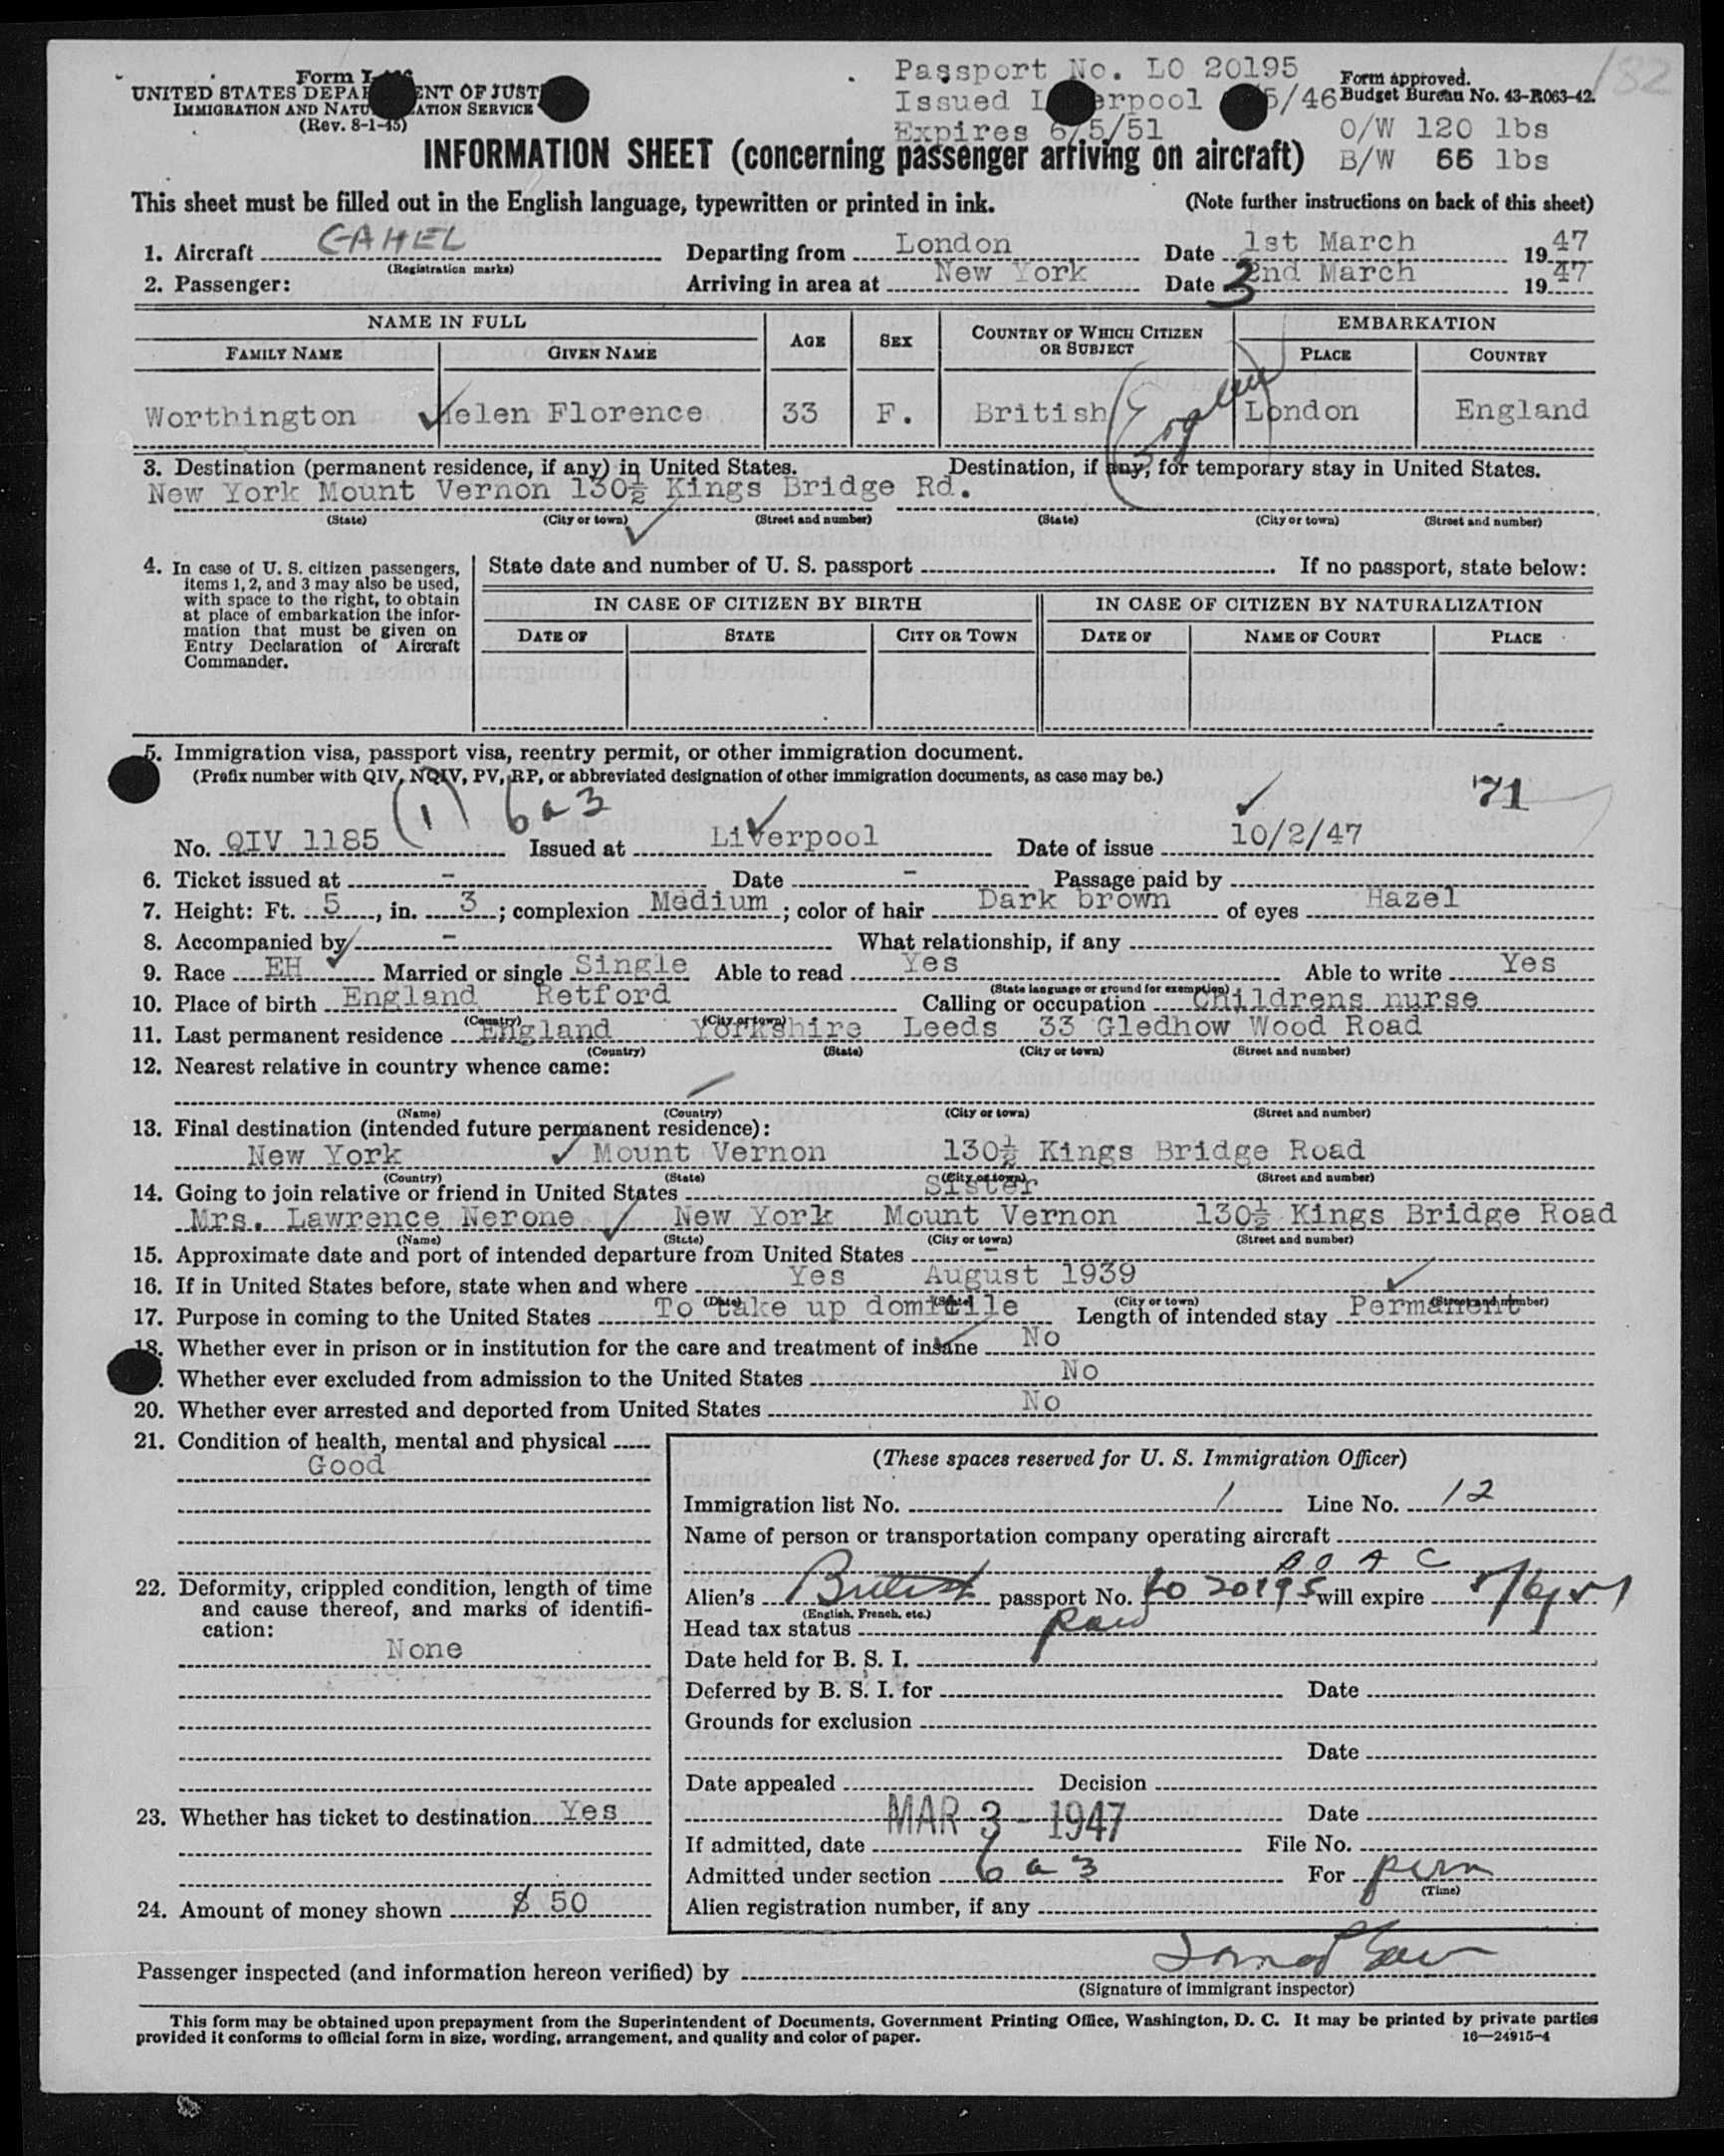 182
Form I-
UNITED STATES DEPA ENT OF JUST
IMMIGRATION AND NATU ATION SERVICE
(Rev. 8-1-45)
Passport No. LO 20195
Issued L erpool 5/46
Expires 6/5/51
Form approved.
Budget Bureau No. 43-R063-42.
O/W 120 lbs
B/W 66 lbs
INFORMATION SHEET (concerning passenger arriving on aircraft)
This sheet must be filled out in the English language, typewritten or printed in ink. (Note further instructions on back of this sheet)
1. Aircraft GAHEL Departing from London Date 1st March 1947
(Registration marks)
2. Passenger: Arriving in area at New York Date 3 2nd March 1947
NAME IN FULL AGE SEX COUNTRY OF WHICH CITIZEN OR SUBJECT EMBARKATION
FAMILY NAME GIVEN NAME PLACE COUNTRY
Worthington Helen Florence 33 F. British London England
3. Destination (permanent residence, if any) in United States. Destination, if any, for temporary stay in United States.
New York Mount Vernon 130½ Kings Bridge Rd.
(State) (City or town) (Street and number) (State) (City or town) (Street and number)
4. In case of U. S. citizen passengers, items 1, 2, and 3 may also be used, with space to the right, to obtain at place of embarkation the information that must be given on Entry Declaration of Aircraft Commander.
State date and number of U. S. passport . If no passport, state below:
IN CASE OF CITIZEN BY BIRTH IN CASE OF CITIZEN BY NATURALIZATION
DATE OF STATE CITY OR TOWN DATE OF NAME OF COURT PLACE
5. Immigration visa, passport visa, reentry permit, or other immigration document.
(Prefix number with QIV, NQIV, PV, RP, or abbreviated designation of other immigration documents, as case may be.)
(1) 6a3 71
No. QIV 1185 Issued at Liverpool Date of issue 10/2/47
6. Ticket issued at - Date - Passage paid by
7. Height: Ft. 5, in. 3; complexion Medium; color of hair Dark brown of eyes Hazel
8. Accompanied by - What relationship, if any
9. Race EH Married or single Single Able to read Yes Able to write Yes
(State language or ground for exemption)
10. Place of birth England Retford Calling or occupation Childrens nurse
(Country) (City or town)
11. Last permanent residence England Yorkshire Leeds 33 Gledhow Wood Road
(Country) (State) (City or town) (Street and number)
12. Nearest relative in country whence came:
(Name) (Country) (City or town) (Street and number)
13. Final destination (intended future permanent residence):
New York Mount Vernon 130½ Kings Bridge Road
(Country) (State) (City or town) (Street and number)
14. Going to join relative or friend in United States Sister
Mrs. Lawrence Nerone New York Mount Vernon 130½ Kings Bridge Road
(Name) (State) (City or town) (Street and number)
15. Approximate date and port of intended departure from United States -
16. If in United States before, state when and where Yes August 1939
(Date) (State) (City or town) (Street and number)
17. Purpose in coming to the United States To take up domicile Length of intended stay Permanent
18. Whether ever in prison or in institution for the care and treatment of insane No
. Whether ever excluded from admission to the United States No
20. Whether ever arrested and deported from United States No
21. Condition of health, mental and physical
Good
22. Deformity, crippled condition, length of time and cause thereof, and marks of identification:
None
23. Whether has ticket to destination Yes
24. Amount of money shown $ 50
(These spaces reserved for U. S. Immigration Officer)
Immigration list No. 1 Line No. 12
Name of person or transportation company operating aircraft
B O A C
Alien's British passport No. LO 20195 will expire
(English, French, etc.)
Head tax status paid
Date held for B. S. I.
Deferred by B. S. I. for Date
Grounds for exclusion
Date
Date appealed Decision
Date
MAR 3 - 1947
If admitted, date File No.
Admitted under section 6 a 3 For perm
(Time)
Alien registration number, if any
Passenger inspected (and information hereon verified) by
(Signature of immigrant inspector)
This form may be obtained upon prepayment from the Superintendent of Documents, Government Printing Office, Washington, D. C. It may be printed by private parties
provided it conforms to official form in size, wording, arrangement, and quality and color of paper. 16—24915-4